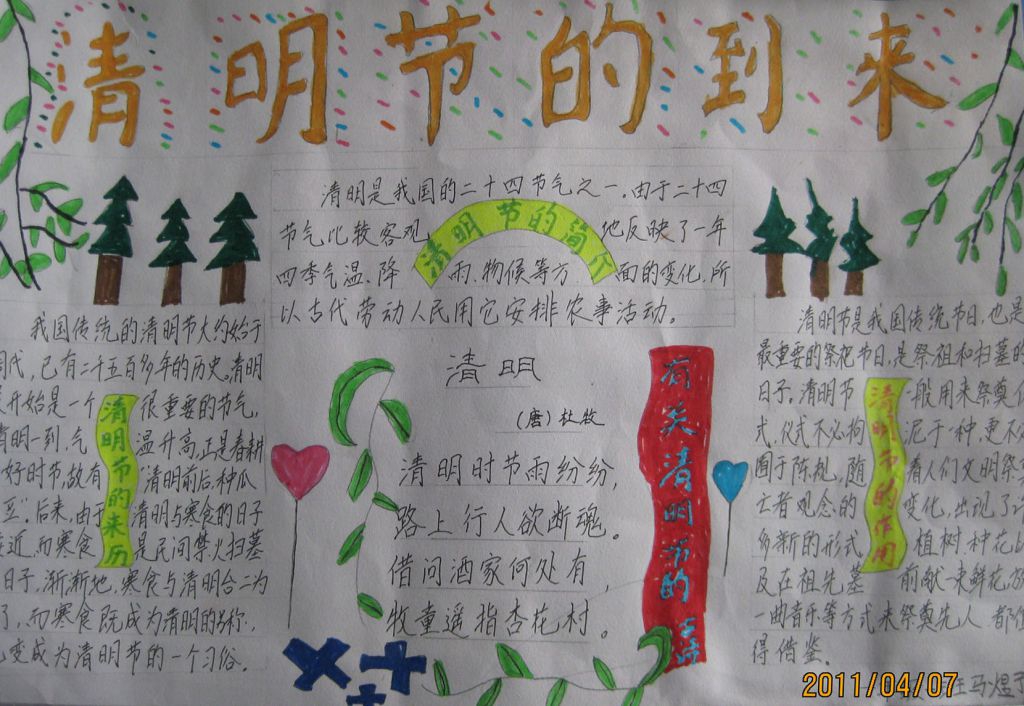 清明节的到来
清明是我国的二十四节气之一.由于二十四
节气比较客观地反映了一年
四季气温.降雨.物候等方面的变化.所
以古代劳动人民用它安排农事活动。
清明节的简介
我国传统的清明节大约始于
周代,已有二千五百多年的历史。清明
开始是一个很重要的节气,
清明一到,气温升高,正是春耕
好时节,故有"清明前后,种瓜
豆".后来,由于清明与寒食的日子
接近,而寒食是民间禁火扫墓
日子,渐渐地,寒食与清明合二为
了,而寒食既成为清明的别称,
变成为清明节的一个习俗。
清明节的来历
清明
(唐)杜牧
清明时节雨纷纷,
路上行人欲断魂。
借问酒家何处有,
牧童遥指杏花村。
有关清明节的古诗
清明节是我国传统节日,也是
最重要的祭祀节日,是祭祖和扫墓的
日子。清明节一般用来祭奠
式,仪式不必拘泥于一种,更不
囿于陈规,随着人们文明祭
亡者观念的变化,出现了
多新的形式植树.种花
及在祖先墓前献一束鲜花,
一曲音乐等方式来祭奠先人,都
得借鉴。
清明节的作用
2011/04/07